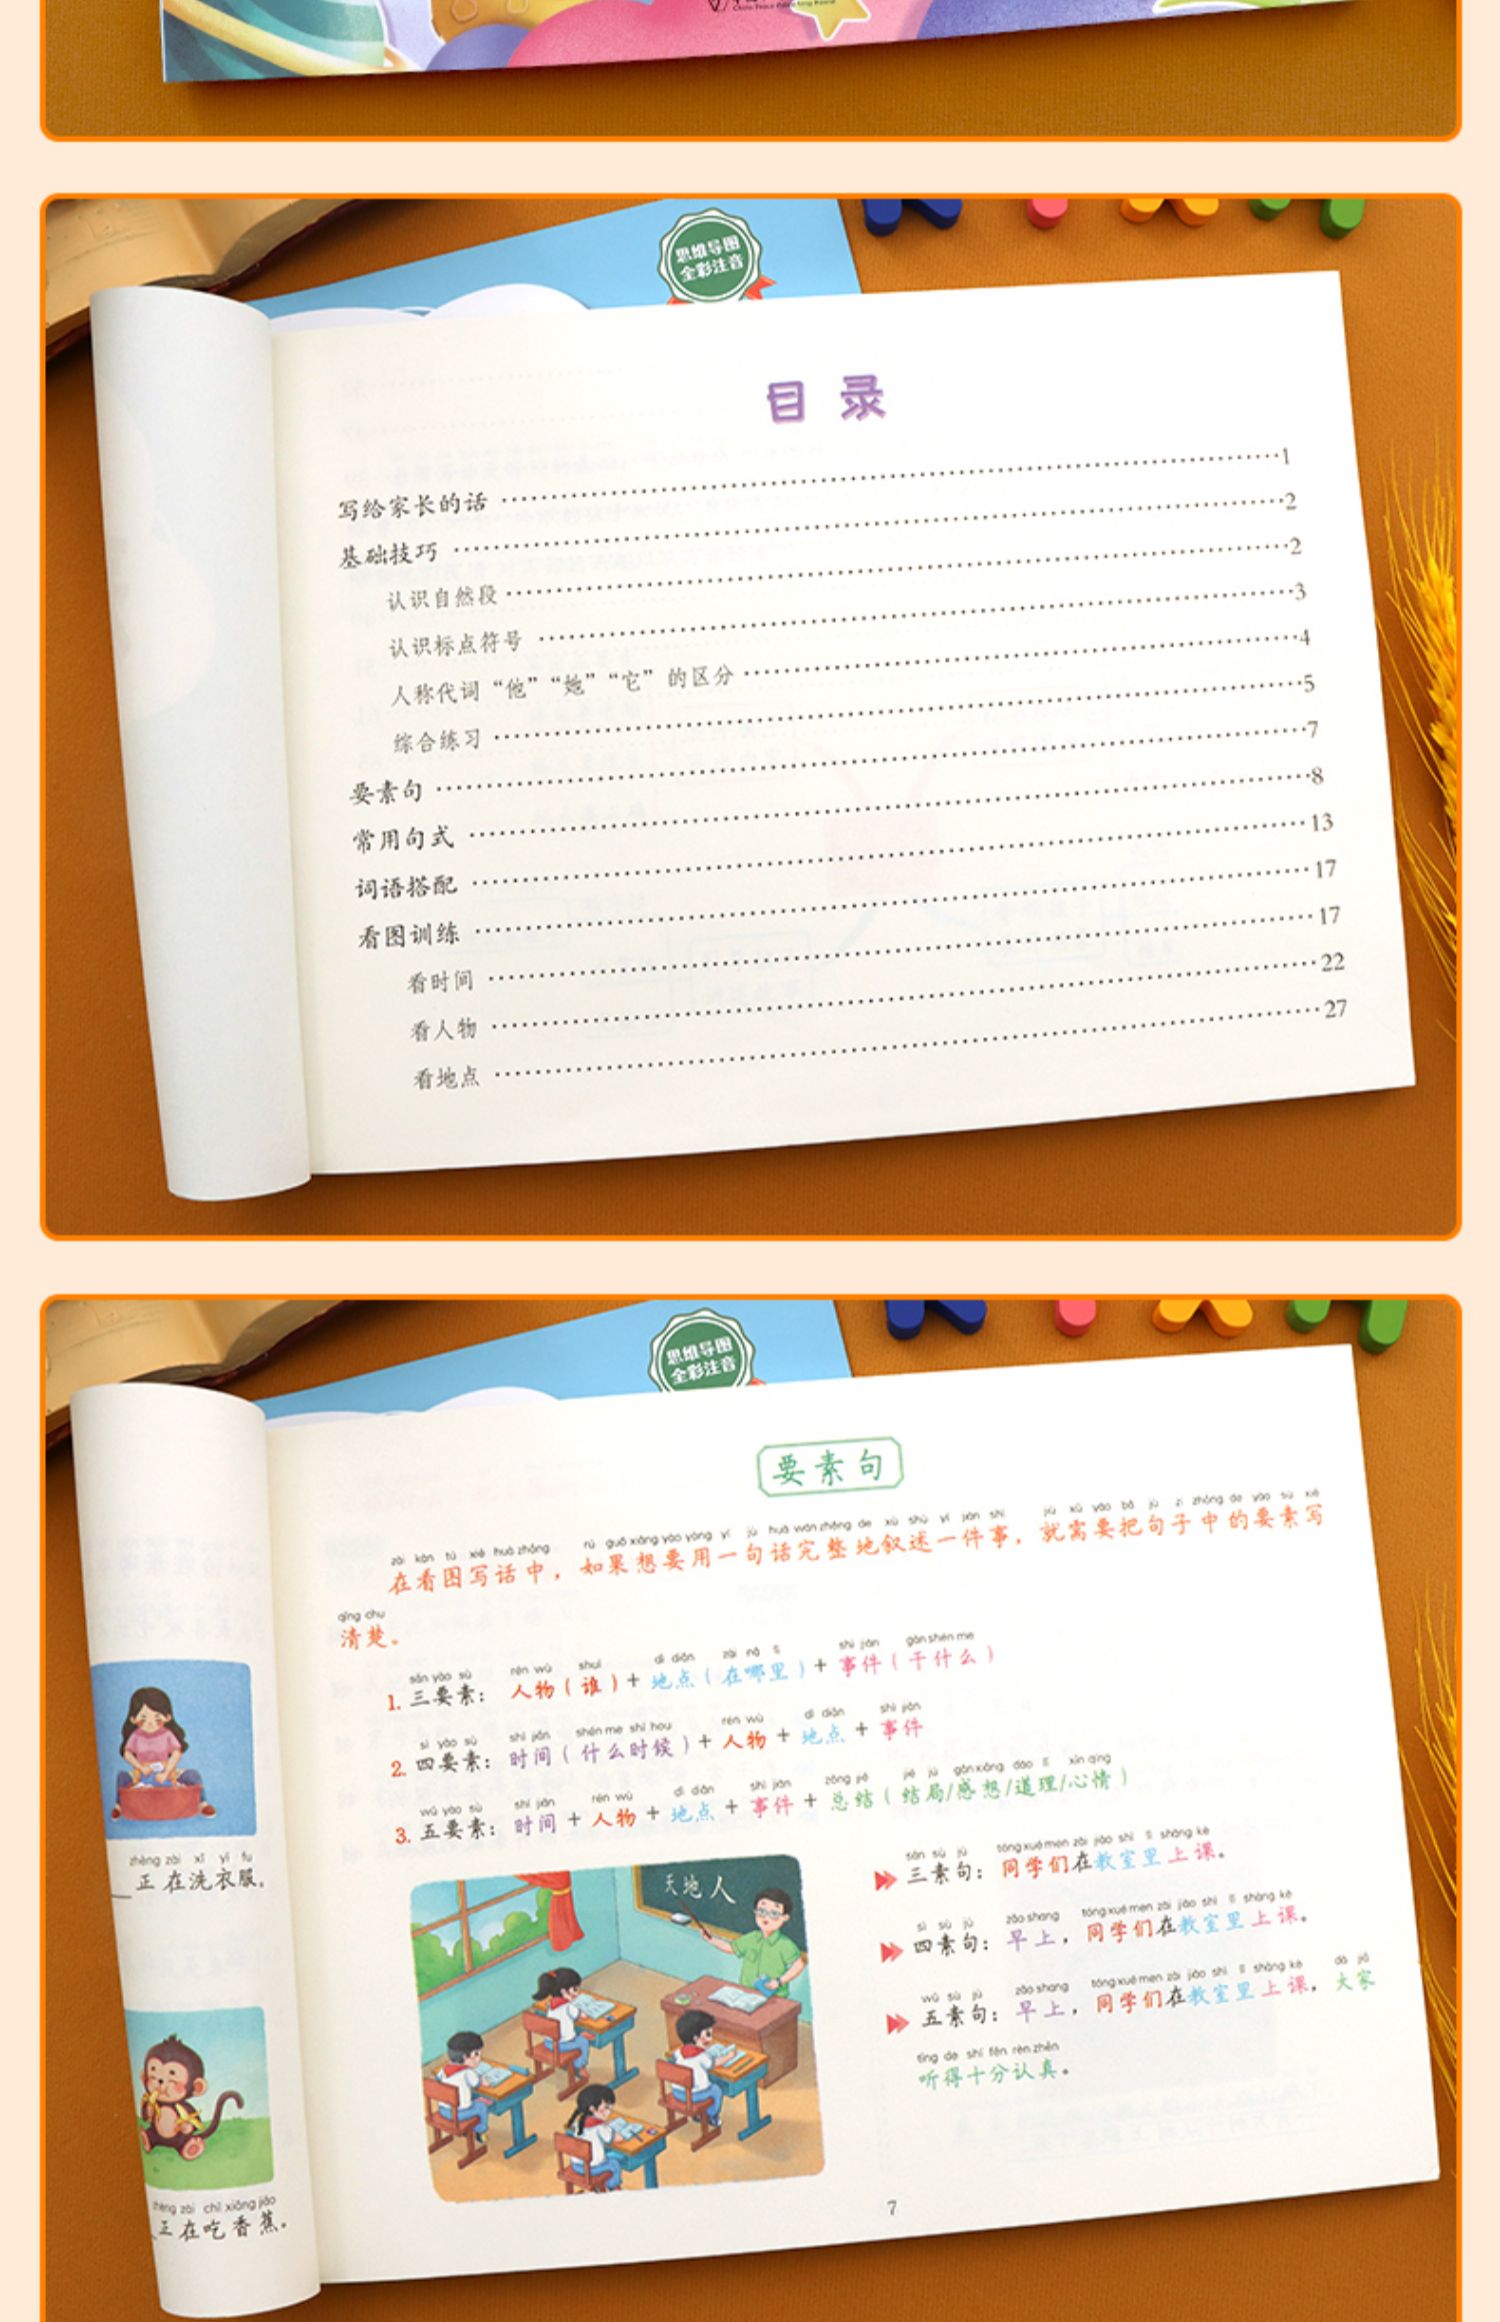 思维导图
全彩注音
目 录
写给家长的话 1
基础技巧 2
认识自然段 2
认识标点符号 3
人称代词“他”“她”“它”的区分 4
综合练习 5
要素句 7
常用句式 8
词语搭配 13
看图训练 17
看时间 17
看人物 22
看地点 27
思维导图
全彩注音
要素句
zài kàn tú xiě huà zhōng rú guǒ xiǎng yào yòng yí jù huà wán zhěng de xù shù yí jiàn shì jiù xū yào bǎ jù zi zhōng de yào sù xiě
在看图写话中，如果想要用一句话完整地叙述一件事，就需要把句子中的要素写
qīng chu
清楚。
sān yào sù rén wù shuí dì diǎn zài nǎ lǐ shì jiàn gàn shén me
1. 三要素：人物（谁）+ 地点（在哪里）+ 事件（干什么）
sì yào sù shí jiān shén me shí hou rén wù dì diǎn shì jiàn
2. 四要素：时间（什么时候）+ 人物 + 地点 + 事件
wǔ yào sù shí jiān rén wù dì diǎn shì jiàn zǒng jié jié jú gǎn xiǎng dào lǐ xīn qíng
3. 五要素：时间 + 人物 + 地点 + 事件 + 总结（结局/感想/道理/心情）
天地人
sān sù jù tóng xué men zài jiào shì lǐ shàng kè
三素句：同学们在教室里上课。
sì sù jù zǎo shang tóng xué men zài jiào shì lǐ shàng kè
四素句：早上，同学们在教室里上课。
wǔ sù jù zǎo shang tóng xué men zài jiào shì lǐ shàng kè dà jiā
五素句：早上，同学们在教室里上课，大家
tīng de shí fēn rèn zhēn
听得十分认真。
7
zhèng zài xǐ yī fu
正在洗衣服。
zhèng zài chī xiāng jiāo
正在吃香蕉。